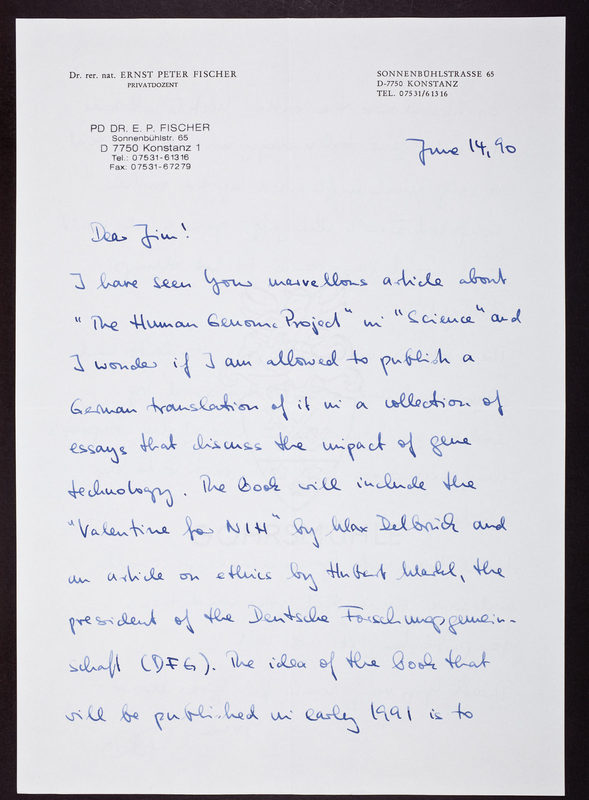 Dr. rer. nat. ERNST PETER FISCHER
PRIVATDOZENT
SONNENBÜHLSTRASSE 65
D-7750 KONSTANZ
TEL. 07531/61316
PD DR. E. P. FISCHER
Sonnenbühlstr. 65
D 7750 Konstanz 1
Tel.: 07531-61316
Fax: 07531-67279
June 14, 90
Dear Jim!
I have seen Your marvellous article about
"The Human Genome Project" in "Science" and
I wonder if I am allowed to publish a
German translation of it in a collection of
essays that discuss the impact of gene
technology. The book will include the
"Valentine for NIH" by Max Delbrück and
an article on ethics by Hubert Markl, the
president of the Deutsche Forschungsgemein-
schaft (DFG). The idea of the book that
will be published in early 1991 is to